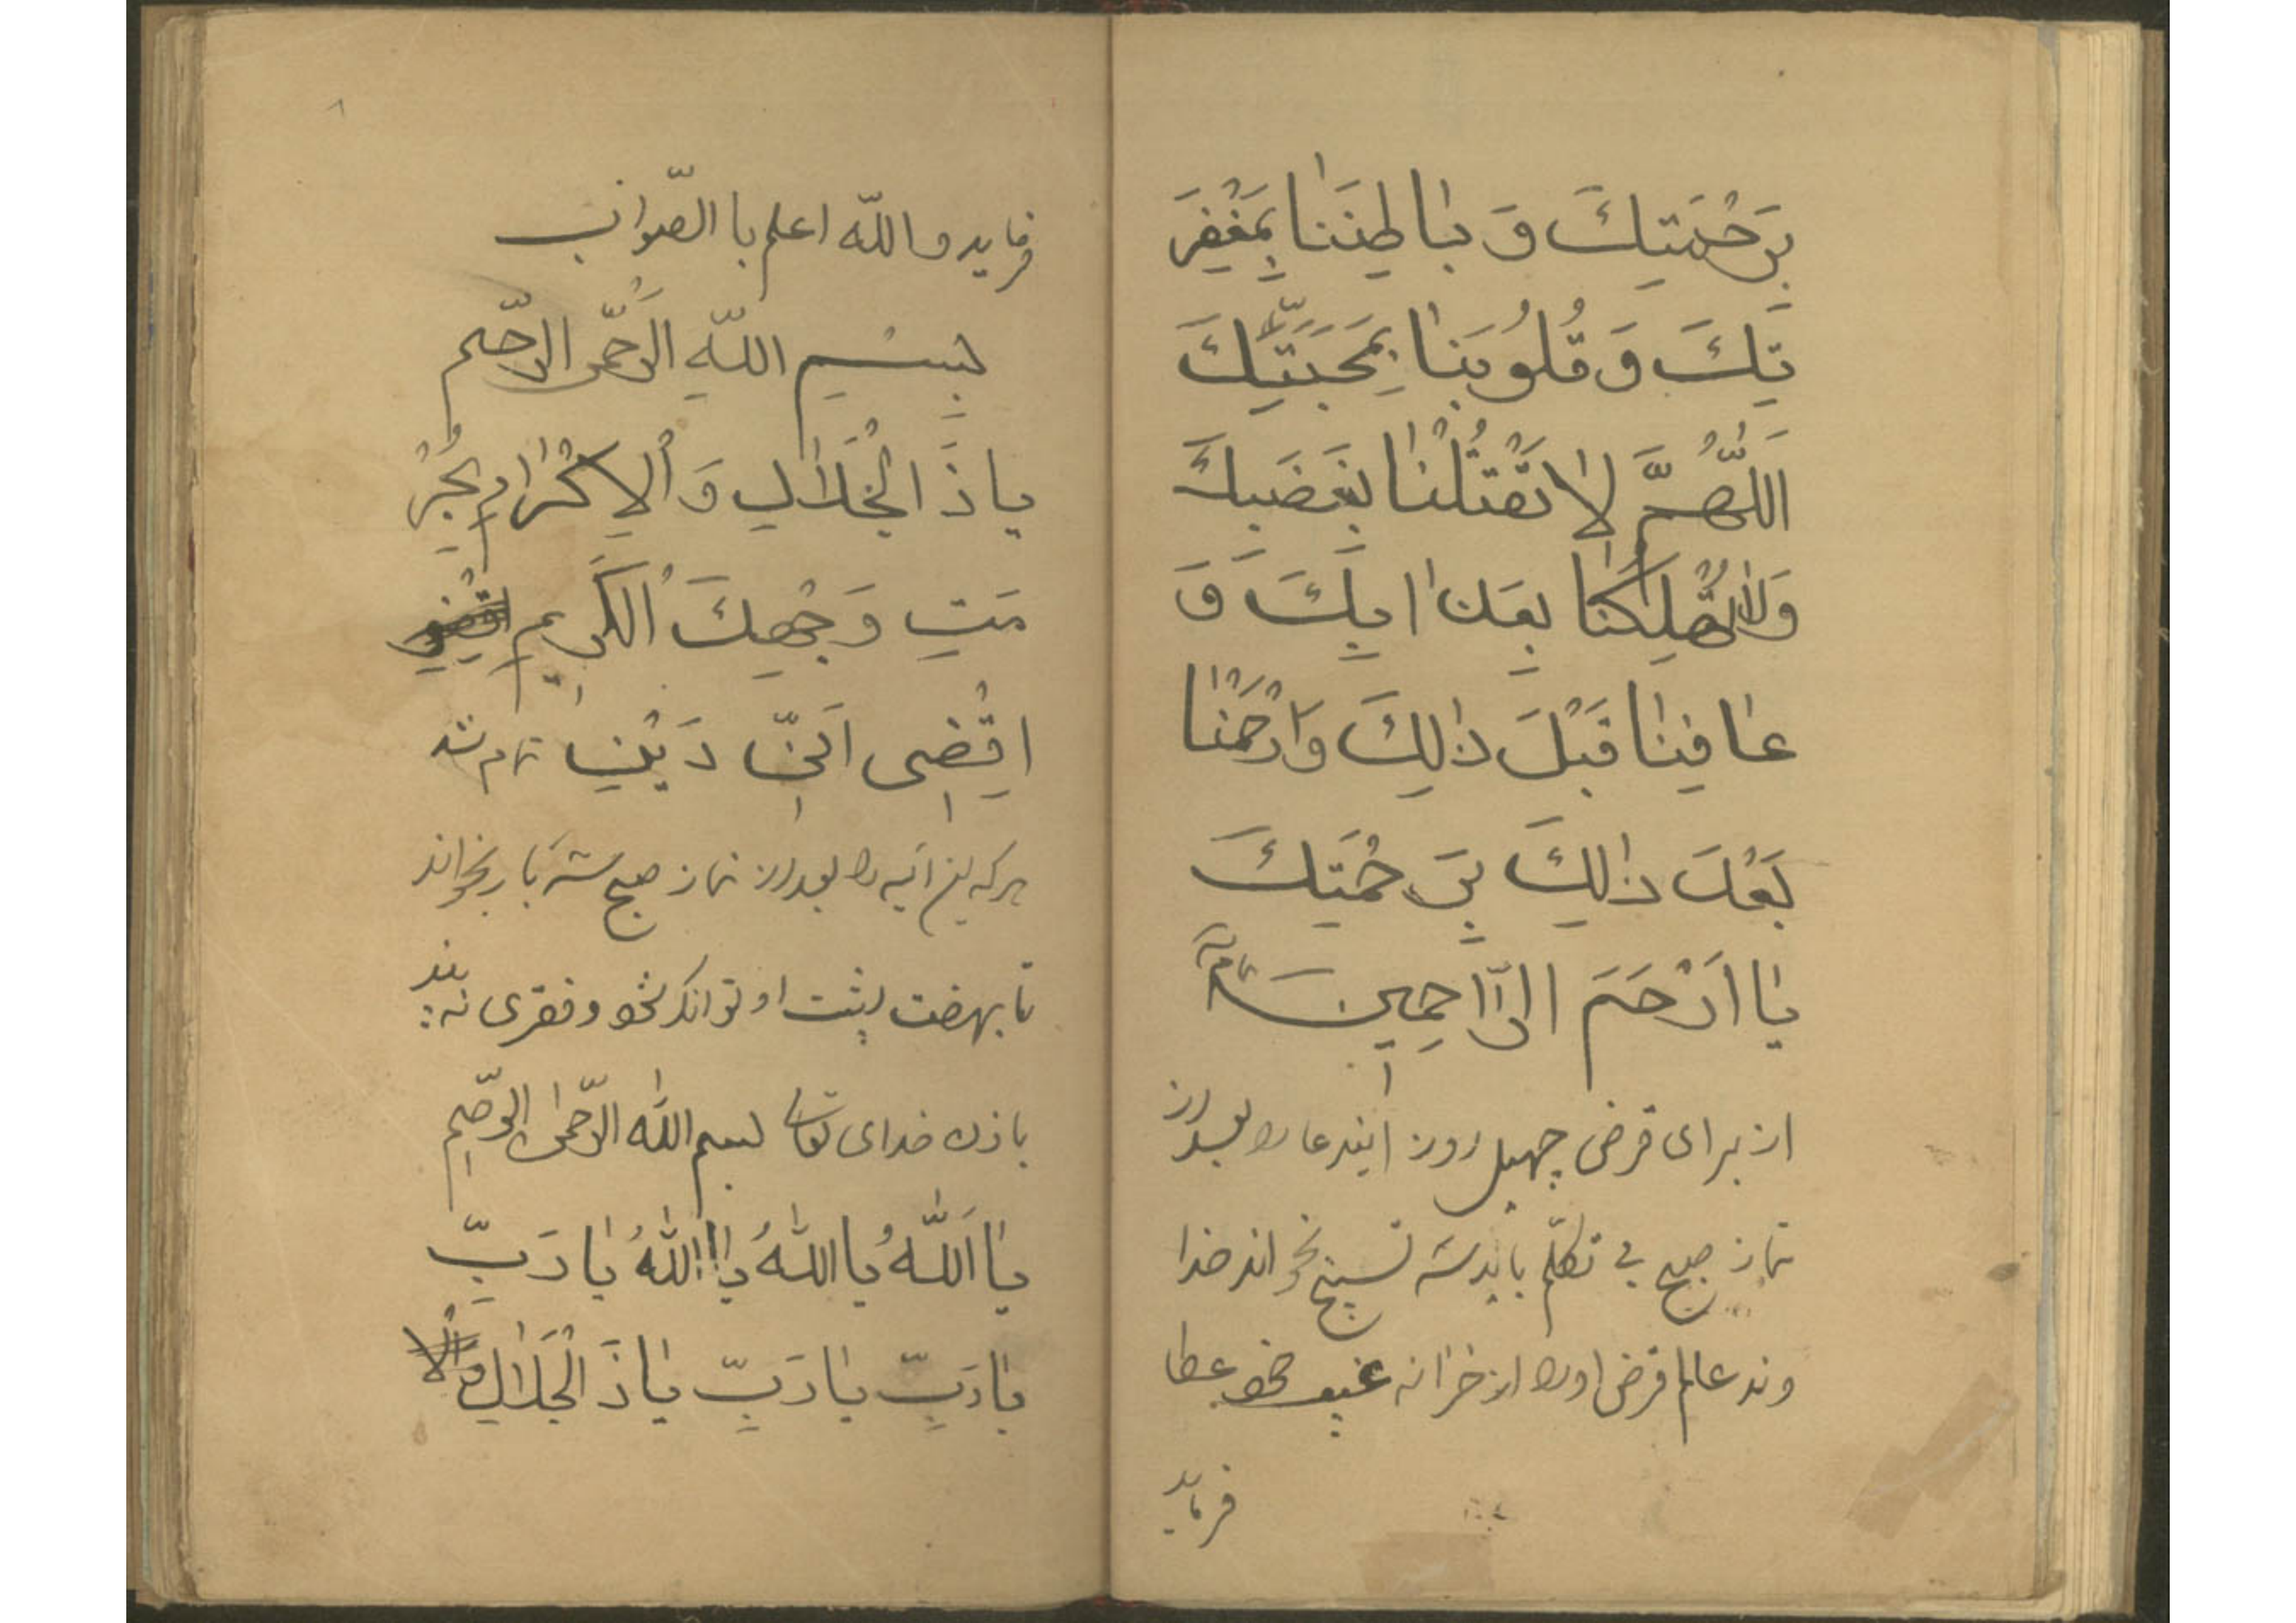 بِرَحْمَتِكَ وَ بٰاطِنَنٰا بِمَغْفِرَ
تِكَ وَ قُلُوبَنٰا بِمَحَبَّتِكَ
اَللّٰهُمَّ لٰا تَقْتُلْنٰا بِغَضَبِكَ
وَلٰا تُهْلِكْنٰا بِعَذٰابِكَ وَ
عٰافِنٰا قَبْلَ ذٰلِكَ وَارْحَمْنٰا
بَعْدَ ذٰلِكَ بِرَحْمَتِكَ
يٰا اَرْحَمَ الرّٰاحِمِينَ
از برای قرض چهل روز ایندعا را بعد از
نماز صبح بی تکلّم باید سه تسبیح بخواند خدا
وند عالم قرض اورا از خزانه غیب خود عطا
فرماید
فرماید والله اعلم با الصّواب
بِسْمِ اللّهِ الرَّحْمٰن الرّحيم
يا ذَا الْجَلٰالِ وَ اْلاِكْرٰامِ بِحُرْ
مَتِ وَجْهِكَ اْلكَرِيمِ
اِقْضِى عَنّى دَيْنى تمام شد
هر که این آیه را بعد از نماز صبح سه بار بخواند
تا بهفت پشت او توانکر شود و فقری نه بیند
باذن خدای تعالی بسم الله الرّحمٰن الرّحیم
يٰا اَللّٰهُ يا اللّٰهُ يا اللّٰهُ يٰا رَبِّ
يٰا رَبِّ يٰا رَبِّ يٰا ذَا الْجَلٰالِ وَالا